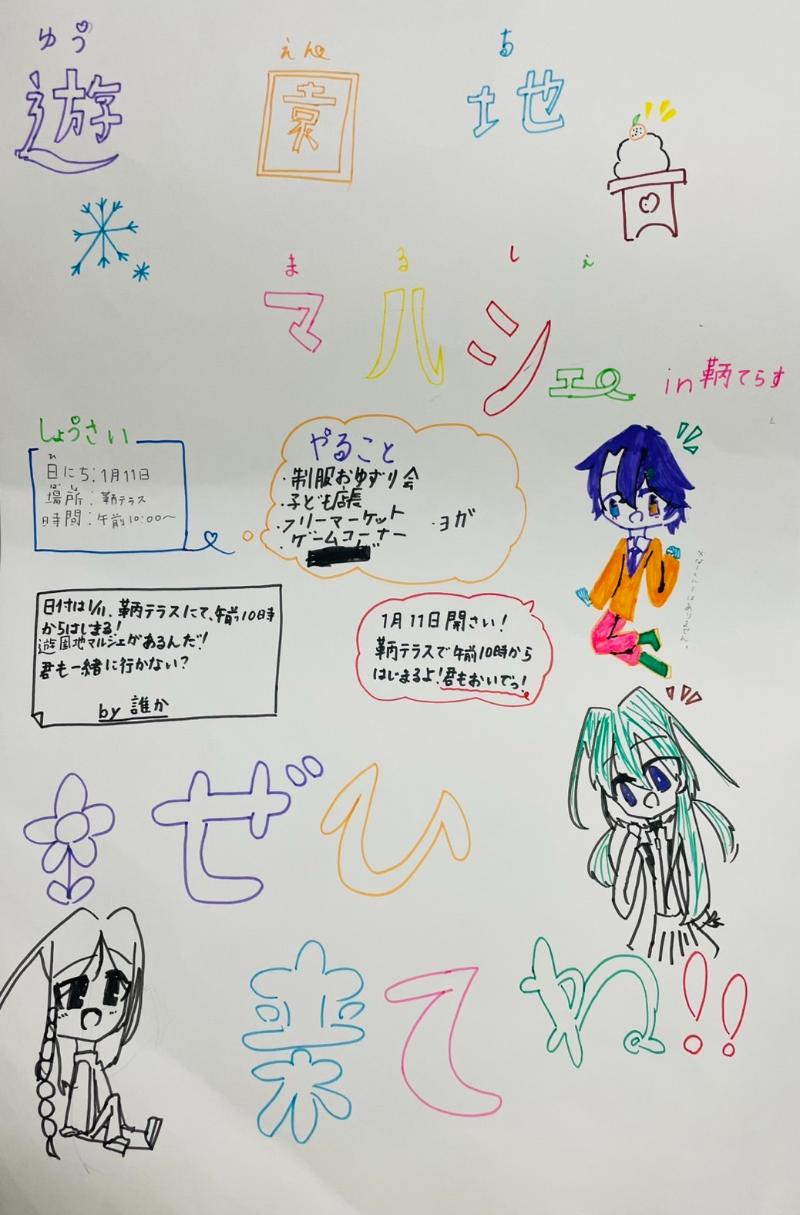 ゆう えん ち
遊園地
まるしぇ
マルシェ in 鞆てらす
しょうさい
日にち:1月11日
ばしょ
場所:鞆テラス
時間:午前10:00〜
やること
・制服おゆずり会
・子ども店長
・フリーマーケット
・ゲームコーナー
・ヨガ
日付は1/11、鞆テラスにて、午前10時
からはじまる!
遊園地マルシェがあるんだ!
君も一緒に行かない?
by 誰か
1月11日開さい!
鞆テラスで午前10時から
はじまるよ!君もおいでっ!
ぜひ
来てね!!